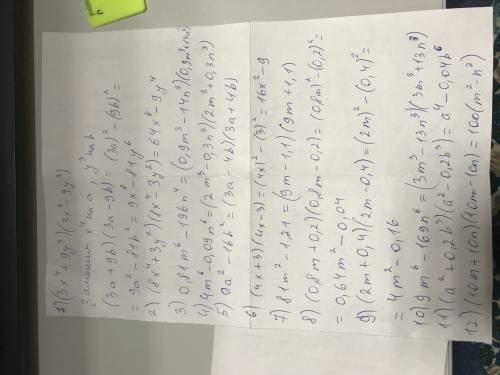 1) (3x⁴+9y³)(3x⁴-9y³)
Заменим x⁴ на a, y³ на b.
(3a+9b)(3a-9b) = (3a)²-(9b)²=
= 9a²-81b² = 9x⁸-81y⁶
2) (8x⁴+3y²)(8x⁴-3y²)=64x⁸-9y⁴
3) 0,81m⁶-196n⁴=(0,9m³-14n²)(0,9m³+14n²)
4) 4m⁶0,09n⁶=(2m³-0,3n³)(2m³+0,3n³)
5) 9a²-16b²=(3a-4b)(3a+4b)
6) (4x+3)(4x-3)=(4x)²-(3)²=16x²-9
7) 81m²-1,21=(9m-1,1)(9m+1,1)
8) (0,8m+0,2)(0,8m-0,2)=(0,8m)²-(0,2)²=
= 0,64m²-0,04
9) (2m+0,4)(2m-0,4)=(2m)²-(0,4)²=
= 4m²-0,16
10) 9m⁶-169n⁶=(3m³-13n³)(3m³+13n³)
11) (a²+0,2b³)(a²-0,2b³)=a⁴-0,04b⁶
12) (10m+10n)(10m-10n)=100(m²-n²)